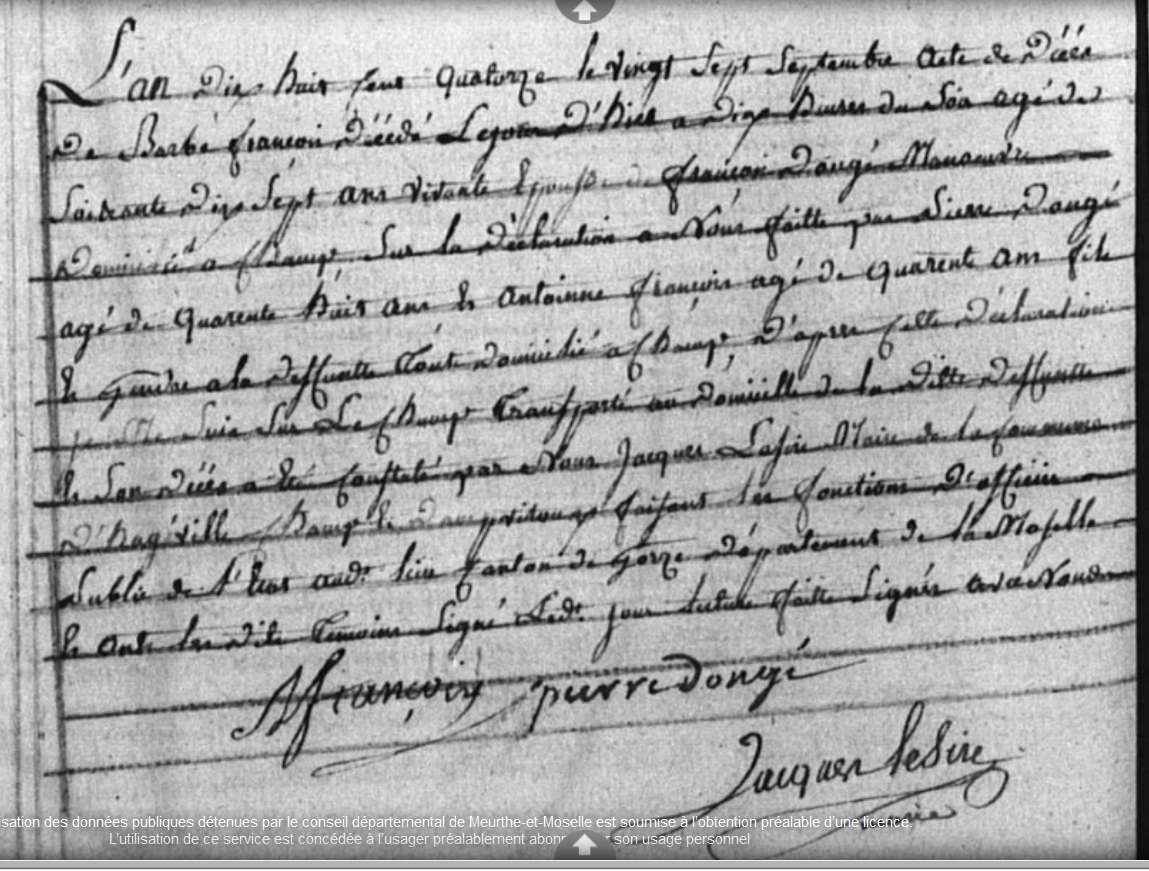 L'an Dix huit cent quatorze le vingt sept septembre acte de Décés
De Barbe françois Décédé Le jour D'hier a Dix heures du soir agé de
soixante Dix sept ans vivante Epouse de françois Dongé Manoeuvre
Domicilié a Champs sur la Déclaration a Nous faitte par Pierre Dongé
agé de quarente huit ans Et Antoinne françois agé de quarent ans fils
Et gendre a la Deffuntte tout domicilié a Champs, D'apres cette déclaration
suis sur Le Champs transporté au Domicille de la ditte Deffuntte
Et son Décés a Eté constaté par Nous Jacques Lesire Maire de la commune
D'hagéville Champs Et Dampvitoux faisant les fonctions D'officier
Public de l'Etat audt lieu Canton de gorze Département de la Moselle
Et ont les dits temoins signé Ledt jour lecture faitte signés avec Nous
françois pierre Dongé
Jacques leSire
maire
sation des données publiques détenues par le conseil départemental de Meurthe-et-Moselle est soumise à l'obtention préalable d'une licence.
L'utilisation de ce service est concédée à l'usager préalablement abonn son usage personnel